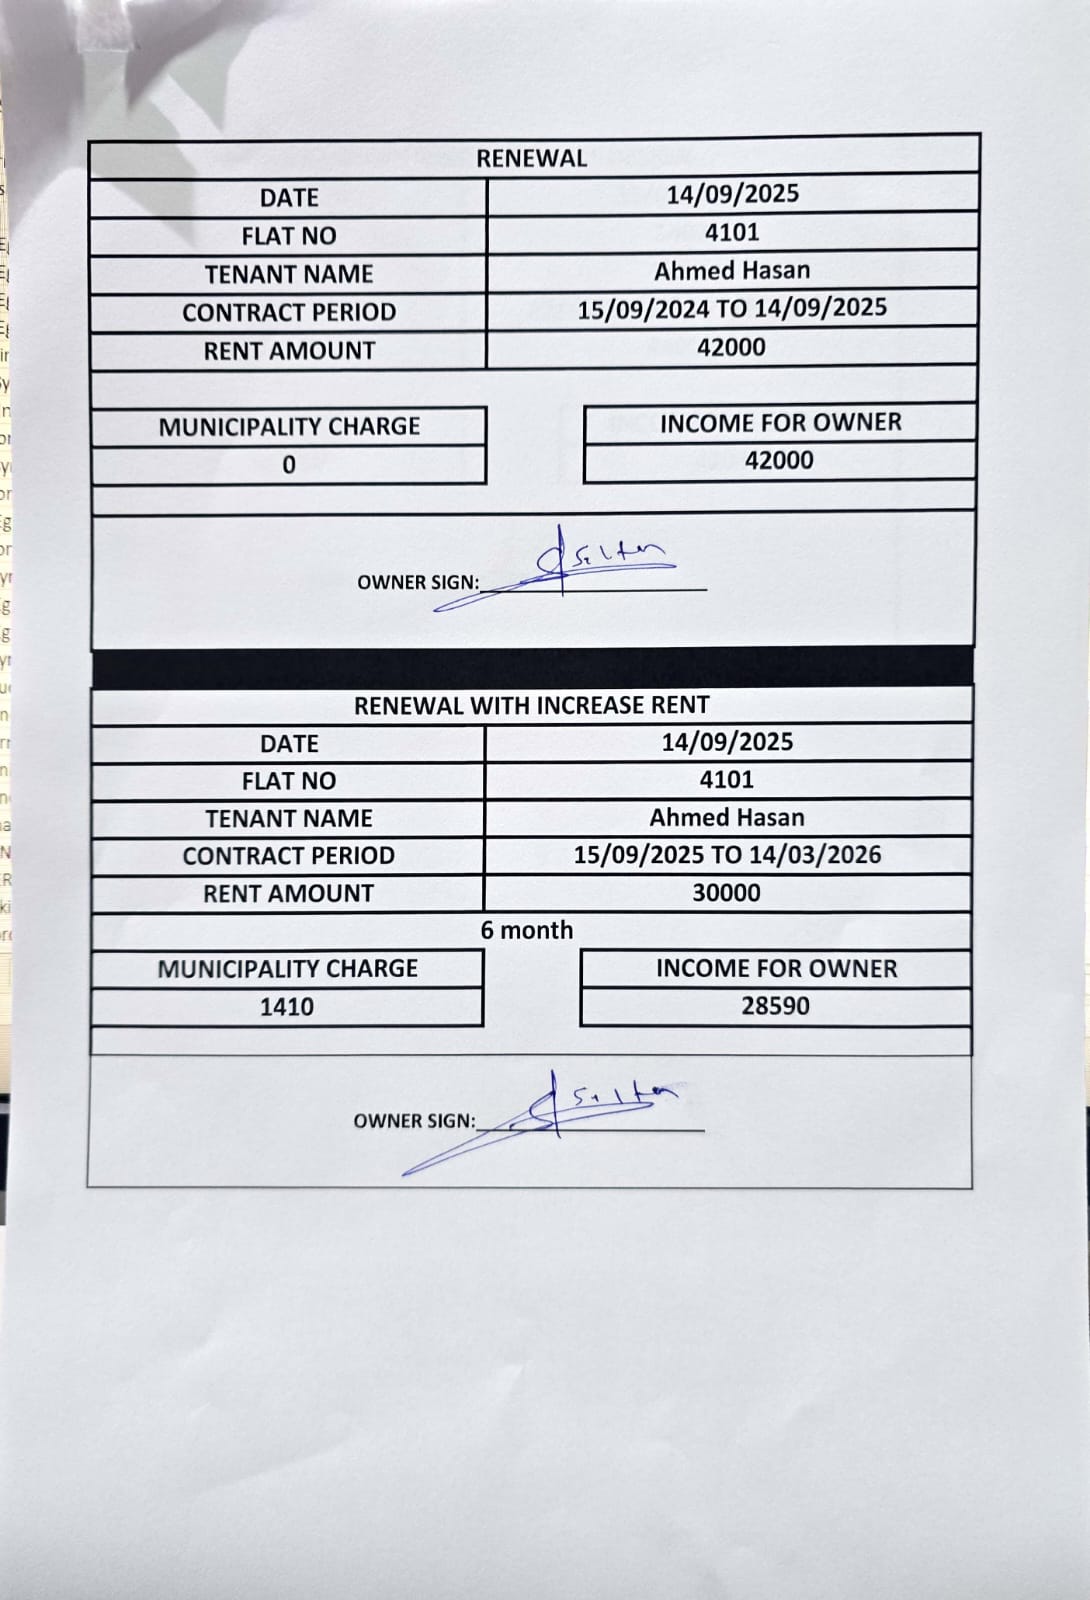 RENEWAL
DATE 14/09/2025
FLAT NO 4101
TENANT NAME Ahmed Hasan
CONTRACT PERIOD 15/09/2024 TO 14/09/2025
RENT AMOUNT 42000
MUNICIPALITY CHARGE INCOME FOR OWNER
0 42000
OWNER SIGN:
RENEWAL WITH INCREASE RENT
DATE 14/09/2025
FLAT NO 4101
TENANT NAME Ahmed Hasan
CONTRACT PERIOD 15/09/2025 TO 14/03/2026
RENT AMOUNT 30000
6 month
MUNICIPALITY CHARGE INCOME FOR OWNER
1410 28590
OWNER SIGN: